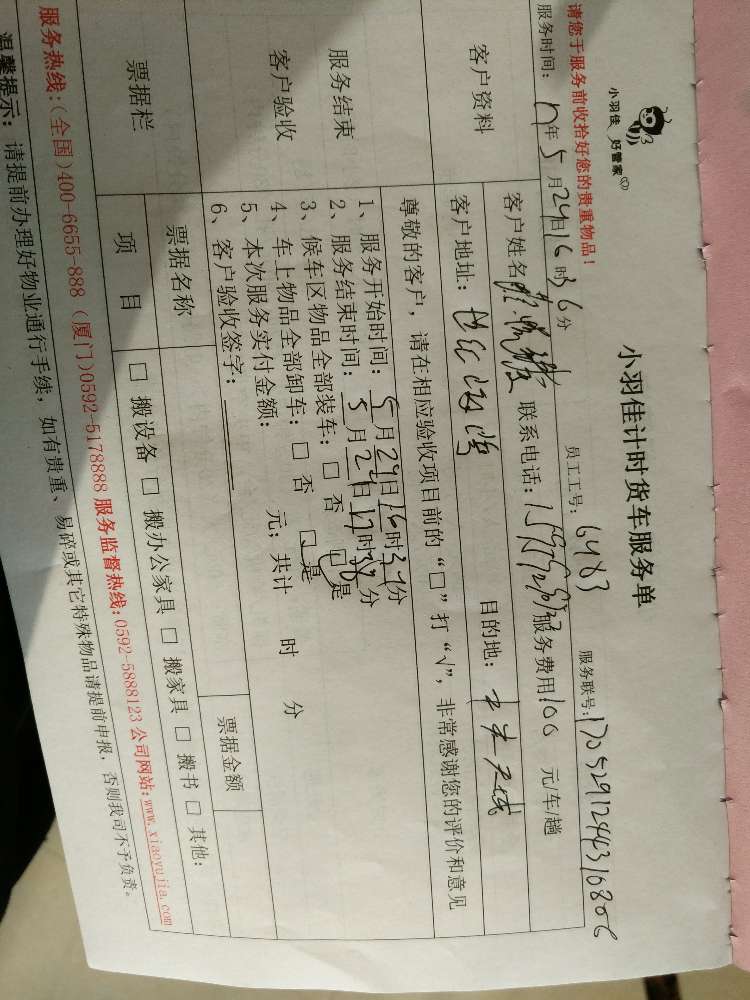 小羽佳 好管家
小羽佳计时货车服务单
请您于服务前收拾好您的贵重物品!
员工工号: 6483 服务联号:
服务时间: 17年5月29日16时36分
客户资料
客户姓名 联系电话: 服务费用100元/车/趟
客户地址: 目的地:
尊敬的客户,请在相应验收项目前的“□”打“√”,非常感谢您的评价和意见
服务结束
客户验收
1、服务开始时间: 5月29日16时37分
2、服务结束时间: 5月29日17时分
3、候车区物品全部装车: □ 否 □ 是
4、车上物品全部卸车: □ 否 □ 是
5、本次服务实付金额: 元; 共计 时 分
6、客户验收签字:
票据栏
票据名称 票据金额
项 目 □ 搬设备 □ 搬办公家具 □ 搬家具 □ 搬书 □ 其他:
服务热线:(全国)400-6655-888 (厦门)0592-5178888 服务监督热线:0592-5888123 公司网站:www.xiaoyujia.com
温馨提示: 请提前办理好物业通行手续,如有贵重、易碎或其它特殊物品请提前申报,否则我司不予负责。